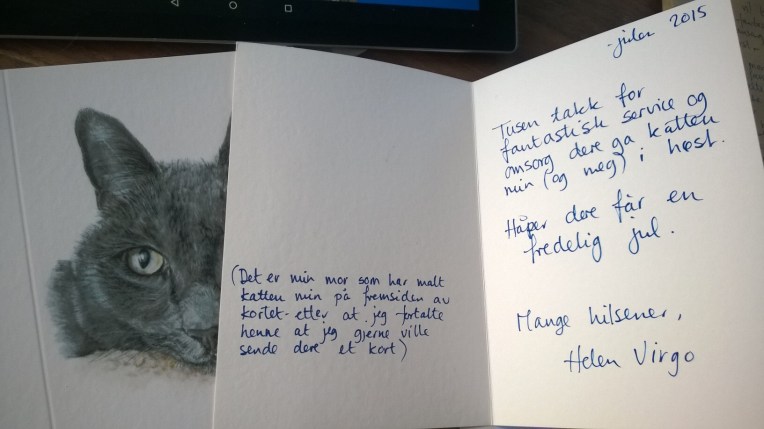 (Det er min mor som har malt
katten min på fremsiden av
kortet - etter at jeg fortalte
henne at jeg gjerne ville
sende dere et kort)
julen 2015
Tusen takk for
fantastisk service og
omsorg dere ga katten
min (og meg) i høst.
Håper dere får en
fredelig jul.
Mange hilsener,
Helen Virgo